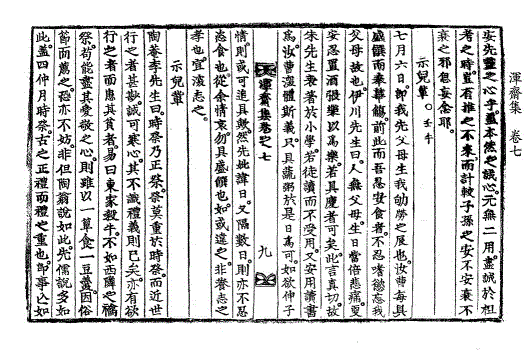 渾齋集 卷七
安先靈之心乎盖本然之誠心元無二用盡誠於祖
考之時豈有推之不來而計較子孫之安不安衰不
衰之邪念妄念耶
示兒輩 ○壬午
七月六日卽我先父母生我劬勞之辰也汝曹每具
盛饌而來華觴前此而吾忍喫食者不忍嗜慾忘我
父母故也伊川先生曰人無父母生日當倍悲痛更
安忍置酒張樂以爲樂若具慶者可矣此言眞切故
朱先生來著於小學若徒讀而不受用又安用讀書
爲汝曹深體斯義只具蔬粥於是日爲可如欲伸子
渾齋集卷之七 九
情則或可追具數然先妣諱日又隔數日則亦不忍
恣食也從余情衷勿具盛饌也如或違之非養志之
孝也宜深志之
示兒輩
陶菴李先生曰時祭乃正祭祭莫重於時祭而近世
行之者甚尠誠可寒心其不識禮義則已矣亦有欲
行之者而患其貧者易曰東家殺牛不如西隣之禴
祭苟能盡其愛敬之心則雖以一簞食一豆羹因俗
節而薦之恐亦不妨非但陶翁說如此先儒說多如
此盖四仲月時祭古之正禮而禮之重也卽事亡如